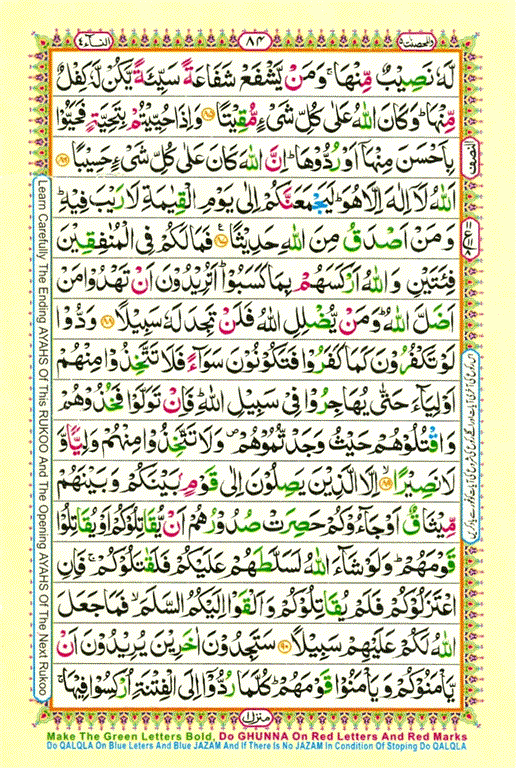 النسآء٤
٨٤
والمحصنت٥
لَّهٗ نَصِيۡبٌ مِّنۡهَا‌ ۚ وَمَنۡ يَّشۡفَعۡ شَفَاعَةً سَيِّئَةً يَّكُنۡ لَّهٗ كِفۡلٌ
مِّنۡهَا‌ ؕ وَكَانَ اللّٰهُ عَلٰى كُلِّ شَىۡءٍ مُّقِيۡتًا ﴿۸۵﴾ وَاِذَا حُيِّيۡتُمۡ بِتَحِيَّةٍ فَحَيُّوۡا
بِاَحۡسَنَ مِنۡهَاۤ اَوۡ رُدُّوۡهَا‌ ؕ اِنَّ اللّٰهَ كَانَ عَلٰى كُلِّ شَىۡءٍ حَسِيۡبًا ﴿۸۶﴾
اَللّٰهُ لَاۤ اِلٰهَ اِلَّا هُوَ‌ ؕ لَيَجۡمَعَنَّكُمۡ اِلٰى يَوۡمِ الۡقِيٰمَةِ لَا رَيۡبَ فِيۡهِ‌ ؕ
وَمَنۡ اَصۡدَقُ مِنَ اللّٰهِ حَدِيۡثًا ﴿۸۷﴾ فَمَا لَكُمۡ فِىۡ الۡمُنٰفِقِيۡنَ
فِئَتَيۡنِ وَاللّٰهُ اَرۡكَسَهُمۡ بِمَا كَسَبُوۡا‌ ؕ اَتُرِيۡدُوۡنَ اَنۡ تَهۡدُوۡا مَنۡ
اَضَلَّ اللّٰهُ‌ ؕ وَمَنۡ يُّضۡلِلِ اللّٰهُ فَلَنۡ تَجِدَ لَهٗ سَبِيۡلًا ﴿۸۸﴾ وَدُّوۡا
لَوۡ تَكۡفُرُوۡنَ كَمَا كَفَرُوۡا فَتَكُوۡنُوۡنَ سَوَآءً‌ فَلَا تَتَّخِذُوۡا مِنۡهُمۡ
اَوۡلِيَآءَ حَتّٰى يُهَاجِرُوۡا فِىۡ سَبِيۡلِ اللّٰهِ‌ ؕ فَاِنۡ تَوَلَّوۡا فَخُذُوۡهُمۡ
وَاقۡتُلُوۡهُمۡ حَيۡثُ وَجَدتُّمُوۡهُمۡ‌ ص وَلَا تَتَّخِذُوۡا مِنۡهُمۡ وَلِيًّا وَّ
لَا نَصِيۡرًا ﴿۸۹﴾ اِلَّا الَّذِيۡنَ يَصِلُوۡنَ اِلٰى قَوۡمٍ بَيۡنَكُمۡ وَبَيۡنَهُمۡ
مِّيۡثَاقٌ اَوۡ جَآءُوۡكُمۡ حَصِرَتۡ صُدُوۡرُهُمۡ اَنۡ يُّقَاتِلُوۡكُمۡ اَوۡ يُقَاتِلُوۡا
قَوۡمَهُمۡ‌ ؕ وَلَوۡ شَآءَ اللّٰهُ لَسَلَّطَهُمۡ عَلَيۡكُمۡ فَلَقٰتَلُوۡكُمۡ‌ ۚ فَاِنِ
اعۡتَزَلُوۡكُمۡ فَلَمۡ يُقَاتِلُوۡكُمۡ وَاَلۡقَوۡا اِلَيۡكُمُ السَّلَمَ ۙ فَمَا جَعَلَ
اللّٰهُ لَكُمۡ عَلَيۡهِمۡ سَبِيۡلًا ﴿۹۰﴾ سَتَجِدُوۡنَ اٰخَرِيۡنَ يُرِيۡدُوۡنَ اَنۡ
يَّاۡمَنُوۡكُمۡ وَيَاۡمَنُوۡا قَوۡمَهُمۡ ؕ كُلَّمَا رُدُّوۡۤا اِلَى الۡفِتۡنَةِ اُرۡكِسُوۡا فِيۡهَا‌ ۚ
النصف
منزل ١
Learn Carefully The Ending AYAHS Of This RUKOO And The Opening AYAHS Of The Next Rukoo
Make The Green Letters Bold, Do GHUNNA On Red Letters And Red Marks
Do QALQLA On Blue Leters And Blue JAZAM And If There Is No JAZAM In Condition Of Stoping Do QALQLA